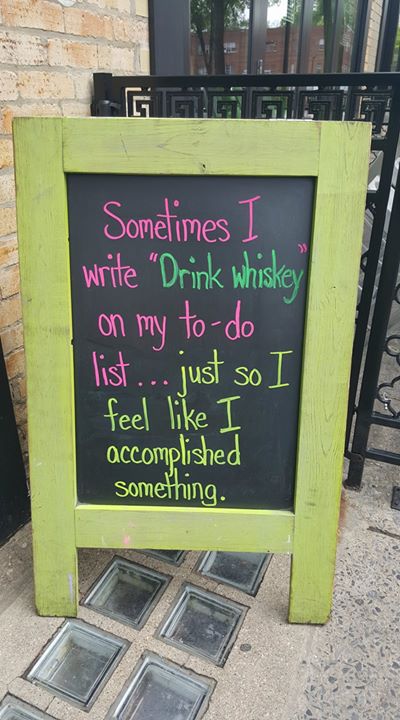 Sometimes I
write "Drink whiskey"
on my to-do
list... just so I
feel like I
accomplished
something.